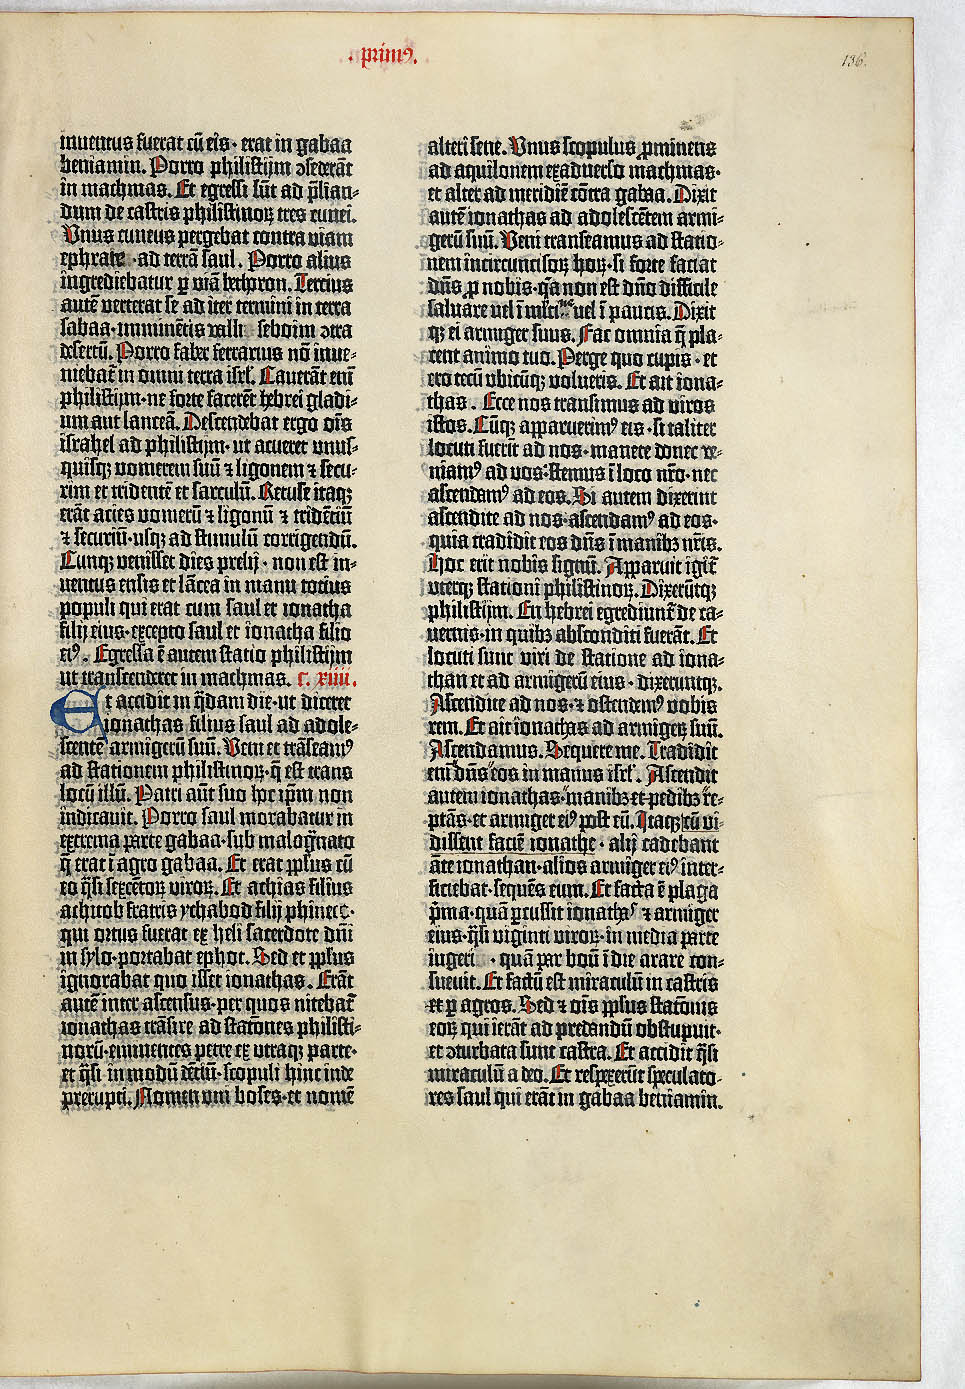 . primꝰ.
136.
inuentus fuerat cū eis· erat in gabaa
beniamin. Porro philistijm ↄsederāt
in machmas. Et egressi sūt ad p̄dan-
dum de castris philistinoꝝ tres cunei.
Vnus cuneus pergebat contra viam
ephrata ·ad terrā saul. Porro alius
ingrediebatur ꝑ viā bethoron. Tertius
autē verterat se ad iter termini in terra
sabaa·imminētis valli seboim ↄtra
desertū. Porro faber ferrarius nō inue-
niebat̄ in omni terra isrl̄. Cauerāt em̄
philistijm·ne forte facerēt hebrei gladi-
um aut lanceā. Descendebat ergo oīs
israhel ad philistijm·ut acueret unus-
quisqꝫ vomerem suū ⁊ ligonem ⁊ secu-
rim et tridentē et sarculū. Retuse itaqꝫ
erāt acies vomerū ⁊ ligonū ⁊ tridētiū
⁊ securiū·usqꝫ ad stimulū corrigendū.
Cunqꝫ venisset dies prelij·non est in-
uentus ensis et lācea in manu totius
populi qui erat cum saul et ionatha
filij eius·excepto saul et ionatha filio
eiꝰ. Egressa ē autem statio philistijm
ut transcenderet in machmas. c. xiiii.
Et accidit in q̄dam die·ut diceret
ionathas filius saul ad adole-
scentē armigerū suū. Veni et trāseamꝰ
ad stationem philistinoꝝ·q̄ est trans
locū illū. Patri aūt suo hoc ip̄m non
indicauit. Porro saul morabatur in
extrema parte gabaa·sub malogᷓnato
q̄ erat ī agro gabaa. Et erat pp̄lus cū
eo q̄si sexcētoꝝ viroꝝ. Et achias filius
achitob fratris ychabod filij phinees·
qui ortus fuerat ex heli sacerdote dn̄i
in sylo·portabat ephot. Sed et pp̄lus
ignorabat quo isset ionathas. Erāt
autē inter ascensus·per quos nitebat̄
ionathas trāsire ad stat̄ones philisti-
norū·eminentes petre ex utraqꝫ parte·
et q̄si in modū dētiū·scopuli hinc inde
prerupti. Nomen vni boses·et nomē
alteri sene. Vnus scopulus ꝓminens
ad aquilonem ex aduerso machmas·
et alter ad meridiē cōtra gabaa. Dixit
autē ionathas ad adolescētem armi-
gerū suū. Veni transeamus ad statio-
nem incircuncisoꝝ hoꝝ·si forte faciat
dn̄s ꝓ nobis·q̄a non est dn̄o difficile
saluare vel ī multitudīe vel ī paucis. Dixit
qꝫ ei armiger suus. Fac omnia q̄ pla-
cent animo tuo. Perge quo cupis·et
ero tecū vbicūqꝫ volueris. Et ait iona-
thas. Ecce nos transimus ad viros
istos. Cūqꝫ apparuerimꝰ eis·si taliter
locuti fuerīt ad nos·manete donec ve-
niamꝰ ad vos:stemus ī loco nr̄o·nec
ascendamꝰ ad eos. Si autem dixerint
ascendite ad nos·ascendamꝰ ad eos·
quia tradidit eos dn̄s ī manibꝫ nr̄is.
Hoc erit nobis signū. Apparuit igit̄
uterqꝫ stationi philistinoꝝ. Dixerūtqꝫ
philistijm. En hebrei egrediunt̄ de ca-
uernis·in quibꝫ absconditi fuerāt. Et
locuti sunt viri de statione ad iona-
than et ad armigerū eius·dixeruntqꝫ.
Ascendite ad nos·⁊ ostendemꝰ vobis
rem. Et ait ionathas ad armigeꝝ suū.
Ascendamus. Sequere me. Tradidit
em̄ dn̄s eos in manus isrl̄. Ascendit
autem ionathas manibꝫ et pedibꝫ re-
ptās·et armiger eiꝰ post eū. Itaqꝫ cū vi-
dissent faciē ionathe·alij cadebant
āte ionathan·alios armiger eiꝰ inter-
ficiebat·sequēs eum. Et facta ē plaga
p̄ma·quā ꝑcussit ionathas ⁊ armiger
eius·q̄si viginti viroꝝ·in media parte
iugeri ·quā par boū ī die arare con-
sueuit. Et factū est miraculū in castris
et ꝑ agros. Sed ⁊ oīs pp̄lus stat̄onis
eoꝝ qui ierāt ad predandū obstupuit·
et ↄturbata sunt castra. Et accidit q̄si
miraculū a deo. Et respexerūt speculato-
res saul qui erāt in gabaa beniamin.